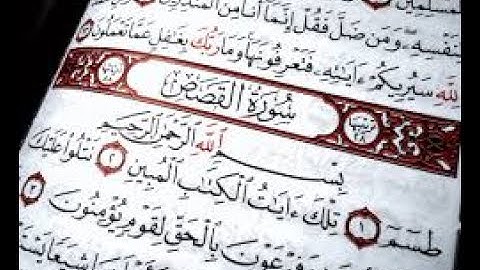 لِنَفْسِهِۦ وَمَن ضَلَّ فَقُلْ إِنَّمَآ أَنَا۠ مِنَ ٱلْمُنذِرِينَ
لِلَّهِ سَيُرِيكُمْ ءَايَٰتِهِۦ فَتَعْرِفُونَهَا وَمَا رَبُّكَ بِغَٰفِلٍ عَمَّا تَعْمَلُونَ
سُورَةُ القَصَصِ
بِسْمِ ٱللَّهِ ٱلرَّحْمَٰنِ ٱلرَّحِيمِ
طسٓمٓ ١ تِلْكَ ءَايَٰتُ ٱلْكِتَٰبِ ٱلْمُبِينِ ٢ نَتْلُوا۟ عَلَيْكَ
وَفِرْعَوْنَ بِٱلْحَقِّ لِقَوْمٍ يُؤْمِنُونَ ٣
شِيَعًا